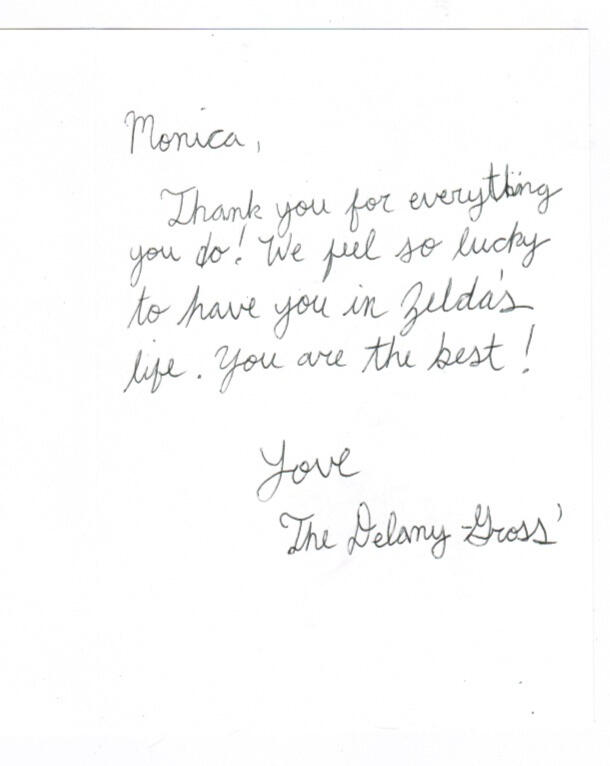 Monica,
Thank you for everything
you do! We feel so lucky
to have you in Zelda's
life. You are the best!
Love
The Delany-Gross'